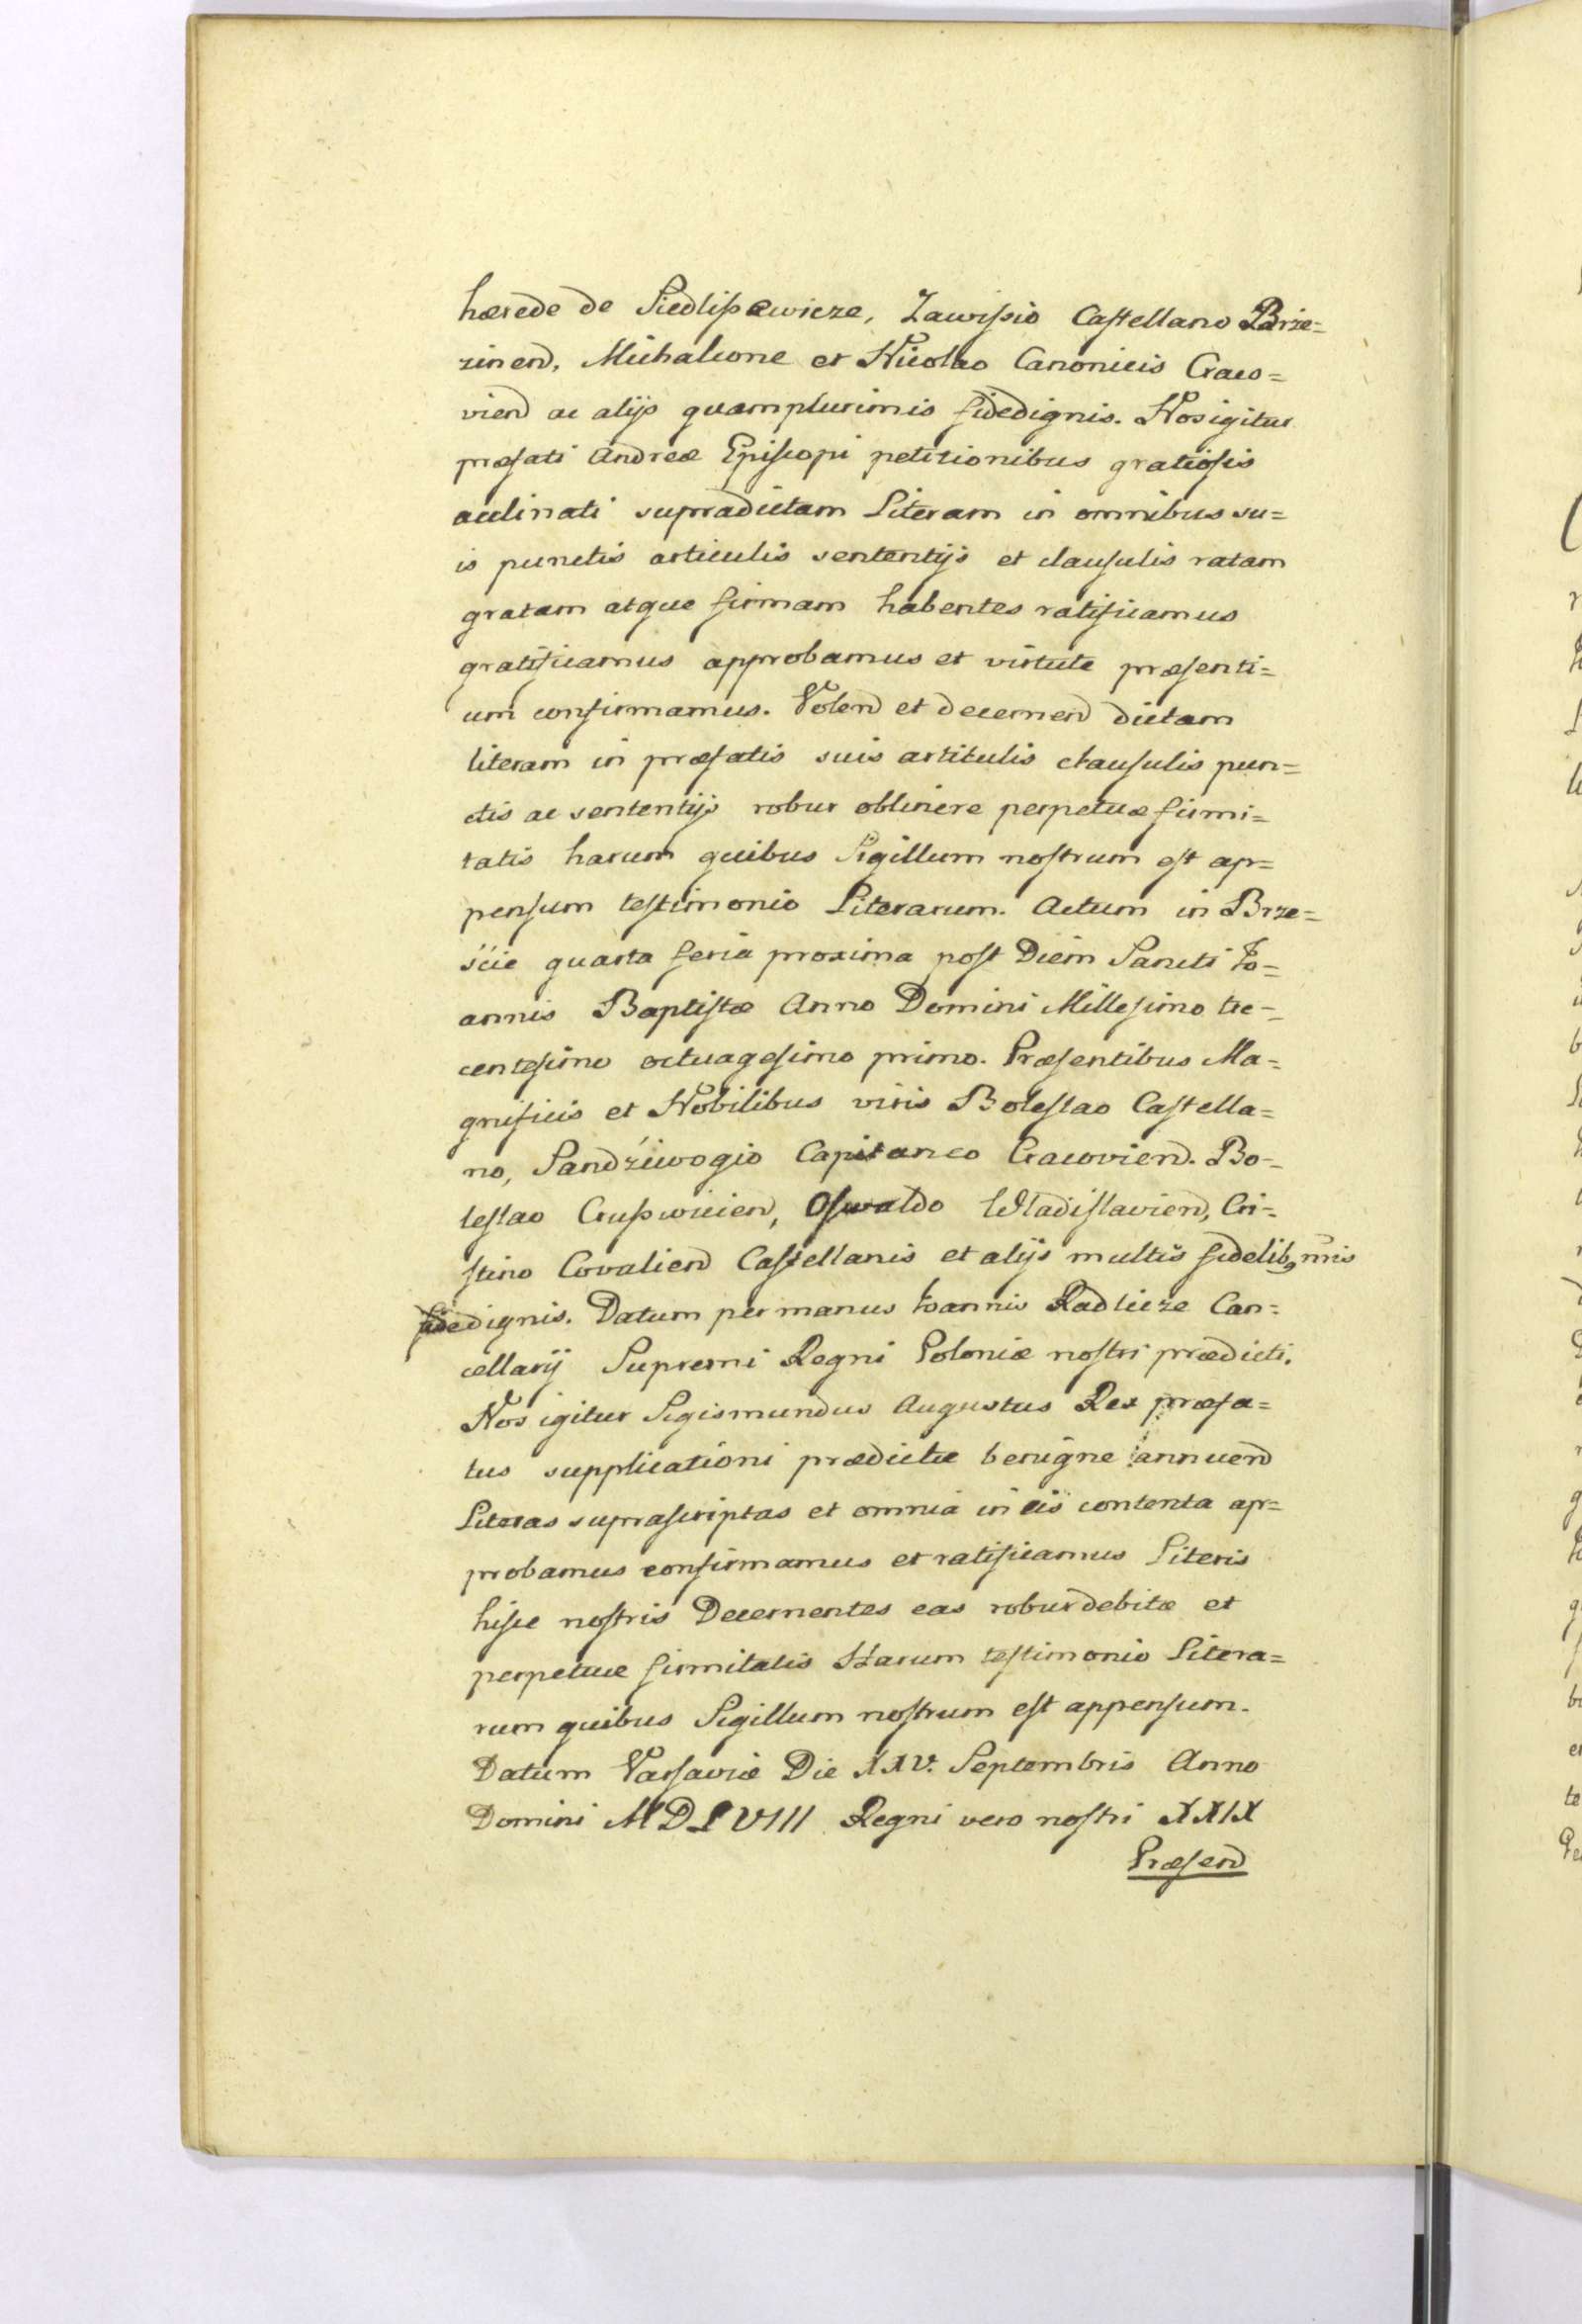 hærede de Siedlißewicze, Zawißio Castellano Brze=
zinen, Michalcone et Nicolao Canonicis Craco=
vien ac alijs quamplurimis fidedignis. Nos igitur
præfati Andreæ Episcopi petitionibus gratiosis
acclinati supradictam Literam in omnibus su=
is punctis articulis sententijs et clausulis ratam
gratam atque firmam habentes ratificamus
gratificamus approbamus et virtute præsenti=
um confirmamus. Volen et decernen dictam
literam in præfatis suis artitulis clausulis pun=
ctis ac sententijs robur obtinere perpetuæ firmi=
tatis harum quibus Sigillum nostrum est ap=
pensum testimonio Literarum. Actum in Brze=
ście quarta feria proxima post Diem Sancti Io=
annis Baptistæ Anno Domini Millesimo tre=
centesimo octuagesimo primo. Præsentibus Ma=
gnificis et Nobilibus viris Boleslao Castella=
no, Sandźiwogio Capitaneo Cracovien. Bo=
leslao Crußwicien, Oswaldo Wladislavien, Cri=
stino Covalien Castellanis et alijs multis fidelibꝫ nris
fidedignis. Datum per manus Ioannis Radlicze Can=
cellarij Supremi Regni Poloniæ nostri prædicti.
Nos igitur Sigismundus Augustus Rex præfa=
tus supplicationi prædictæ benigne annuen
Literas suprascriptas et omnia in eis contenta ap=
probamus confirmamus et ratificamus Literis
hisce nostris Decernentes eas robur debitæ et
perpetuæ firmitatis Harum testimonio Litera=
rum quibus Sigillum nostrum est appensum.
Datum Varsaviæ Die XXV. Septembris Anno
Domini MDLVIII Regni vero nostri XXIX
Præsen